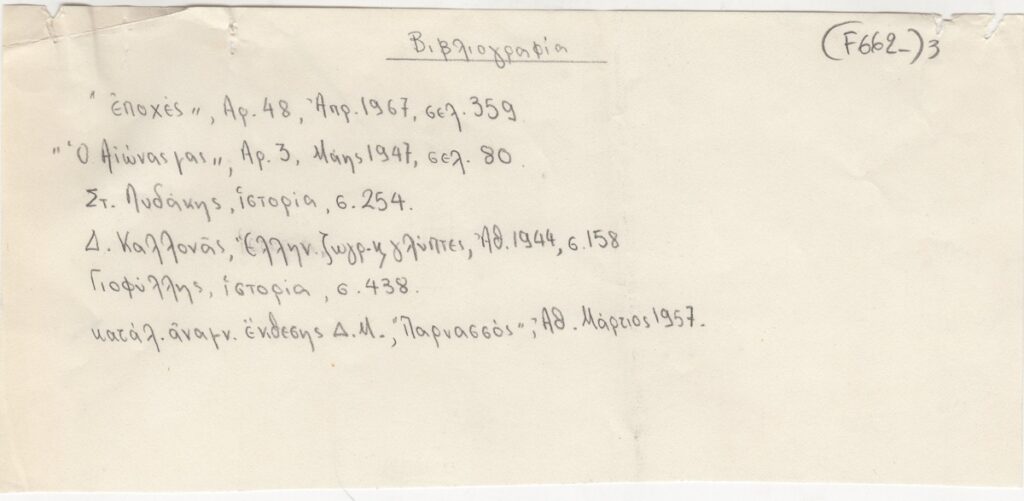 Βιβλιογραφία
(F662-)3
"ἐποχές", Αρ. 48, Ἀπρ. 1967, σελ. 359
"Ὁ Αἰώνας μας", Αρ. 3, Μάης 1947, σελ. 80.
Στ. Λυδάκης, ἱστορία, σ. 254.
Δ. Καλλονᾶς, Ἕλλην. ζωγρ. κ γλύπτες, Ἀθ. 1944, σ. 158
Γιοφύλλης, ἱστορία, σ. 438.
κατάλ. ἀναμν. ἔκθεσης Δ.Μ., "Παρνασσός", Ἀθ. Μάρτιος 1957.